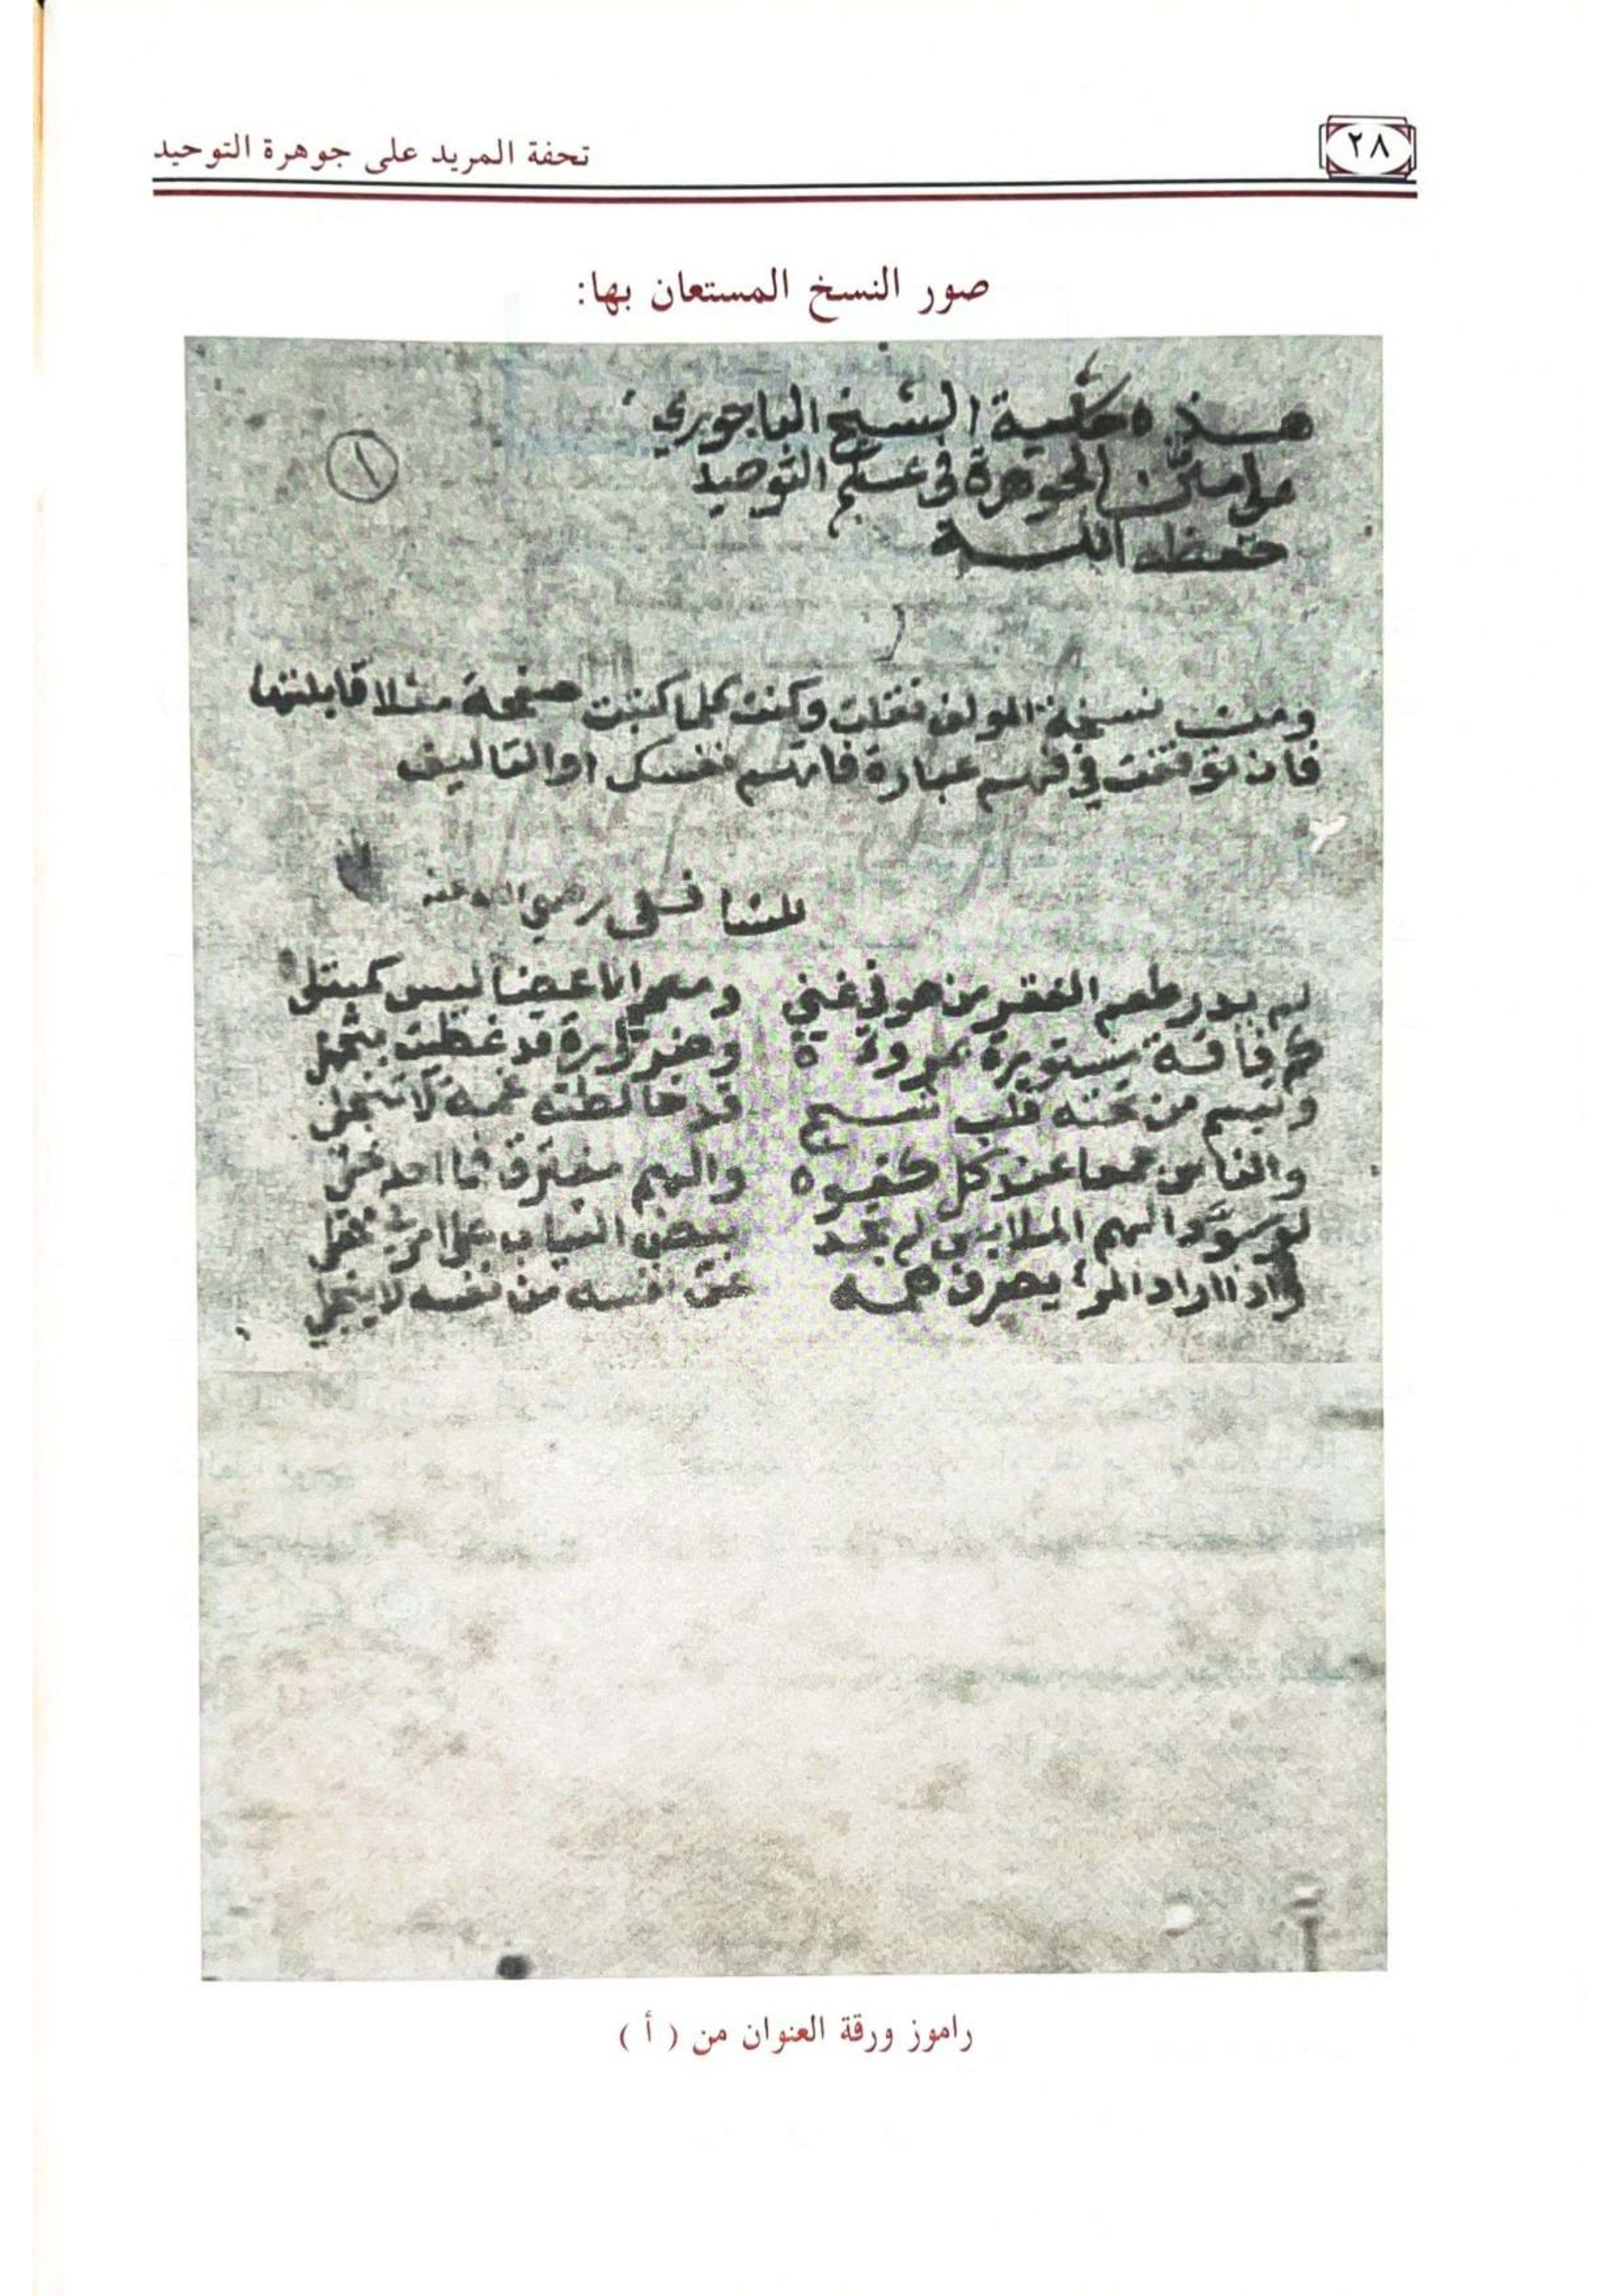 ٢٨
تحفة المريد على جوهرة التوحيد
صور النسخ المستعان بها:
هذه حاشية الشيخ الباجوري
على متن الجوهرة في علم التوحيد
حفظه الله
١
ومن نسخة المولف نقلت وكنت كلما كتبت صفحة مثلا قابلتها
فان توقفت في فهم عبارة فاتهم نفسك او التاليف
للشافعى رضي الله عنه
لم يدر طعم الفقر من هو في غنى ومعم ليس كمبتلى
كم فاقة مستورة بمروة وضرورة قد غطيت بتجمل
وتبسم من تحته قلب شج قد خالطته غمة لا تنجلى
والناس جمعا عند كل كفوه والهم مفترق فما احد خلى
لو سود الهم الملابس لم تجد بيض الثياب على امرئ فى محفل
واذا اراد المرء يصرف همه عن نفسه من نفسه لا ينجلي
راموز ورقة العنوان من ( أ )